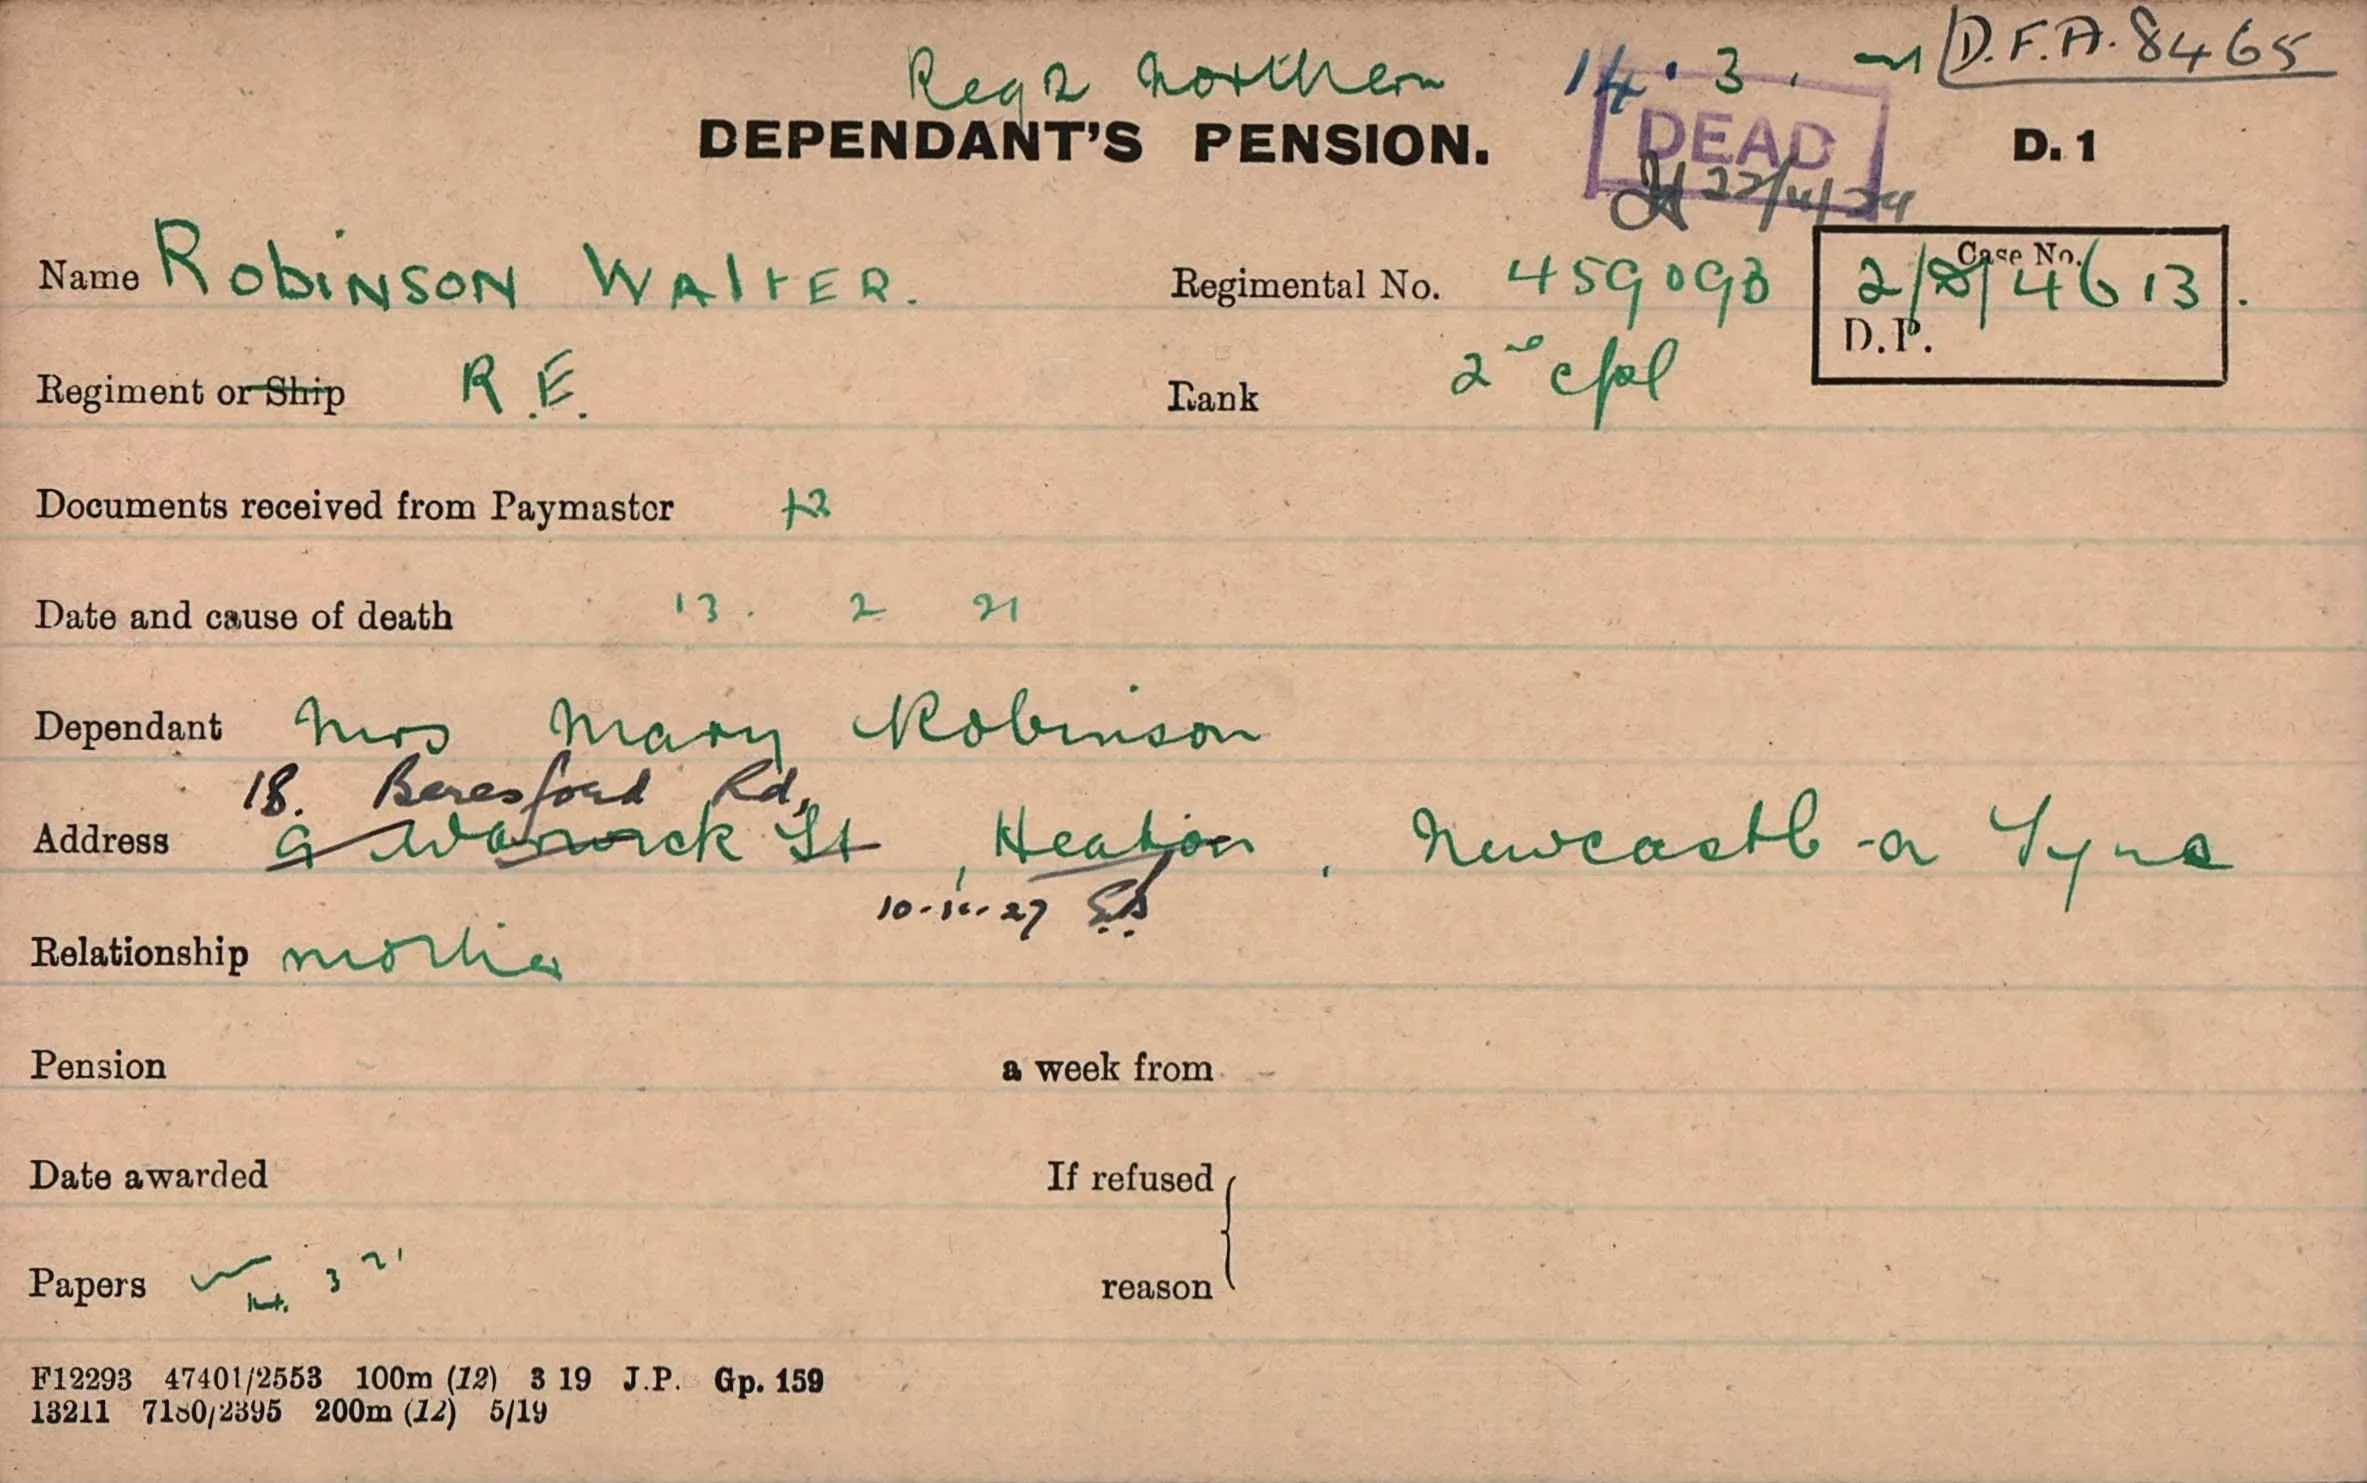 Reg 2 Northern 14.3. D.F.A. 8465
DEPENDANT'S PENSION. DEAD D. 1
22/4/29
Name ROBINSON WALTER. Regimental No. 459093 Case No. 2/D/4613.
D.P.
Regiment or Ship R.E. Rank 2nd Cpl
Documents received from Paymaster
Date and cause of death 13. 2 21
Dependant Mrs Mary Robinson
18. Beresford Rd,
Address 9 Warwick St, Heaton, Newcastle-o Tyne
10-11-27
Relationship mother
Pension a week from
Date awarded If refused
Papers 14. 3 21 reason
F12293 47401/2553 100m (12) 3 19 J.P. Gp. 159
13211 7180/2395 200m (12) 5/19